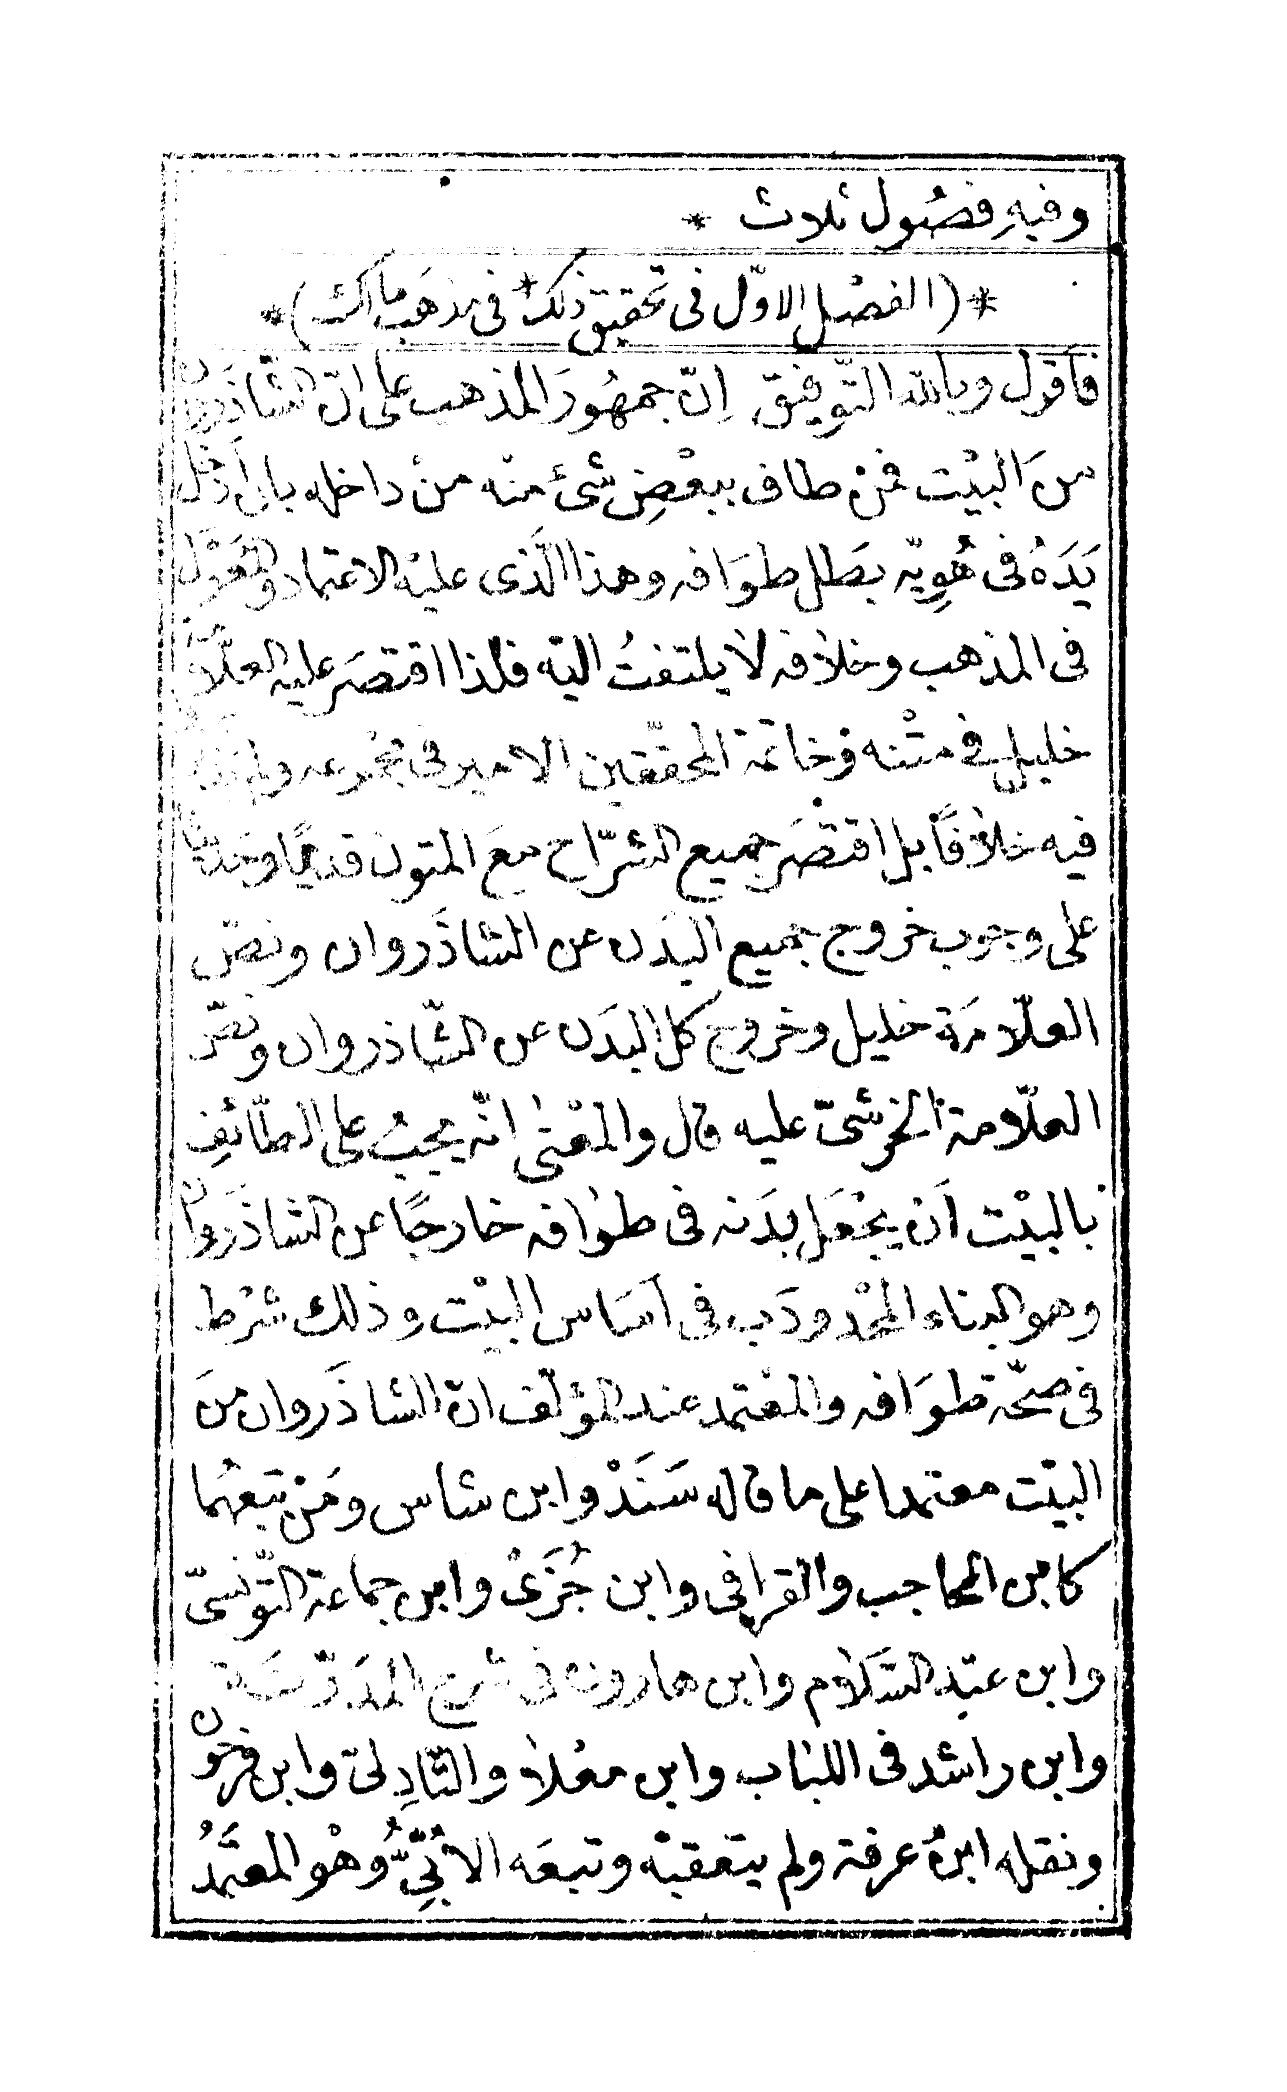 وفيهِ فصُول ثلاث *
*(الفصْل الاوّل فى تحقيق ذلك * فى مذهَب مالك)*
فأقول وبالله التّوفيق إنّ جمهُورَ المذهب على انّ الشّاذَروان
من البيْت فمنْ طاف ببعْضِ شئ منْه منْ داخله بان أدْخل
يَدَهُ فى هُوِيّه بَطل طوَافه وهذا الَّذى عليْه الاعتماد والمعَوّل
فى المذهب وخلافه لا يلتفتُ اليْه فلذا اقتصَر عليه العلّامة
خليل فى متْنه وخاتمة المحقّقين الامير فى مجْموعه ولم
فيه خلافًا بل اقتصَر جميع الشرّاح معَ المتون قديمًا وحديثا
على وجوب خروج جميع البدَن عن الشاذَروان ونصّ
العلّامَة خليل وخروج كل البدَن عن الشّاذروان ونصّ
العلّامة الخرشىّ عليه قال والمعْنى انّه يجبُ على الطّائفِ
بالبيْت اَن يجْعَل بدَنه فى طوافه خارجًا عن الشاذَروان
وهو البناء المحْدودَب فى اَسَاس البيْت وذلك شرْط
فى صحّة طوَافه والمعْتمد عند المؤلّف انّ الشاذَروان منَ
البيْت معتمدا على ما قاله سَنَدْ وابن شاس ومَنْ تبعهُما
كابن الحاجب والقرافى وابن جُزَىْ وابن جماعة التّونسىّ
وابن عبْد السَّلام وابن هارون فى شرح المدَوّنَة
وابن راشد فى اللباب وابن معْلا والتّادِلىّ وابن فرحون
ونقله ابنُ عرفة ولم يتعقبْه وتبعَه الأُبِّىُّ وهْو المعتَمدُ